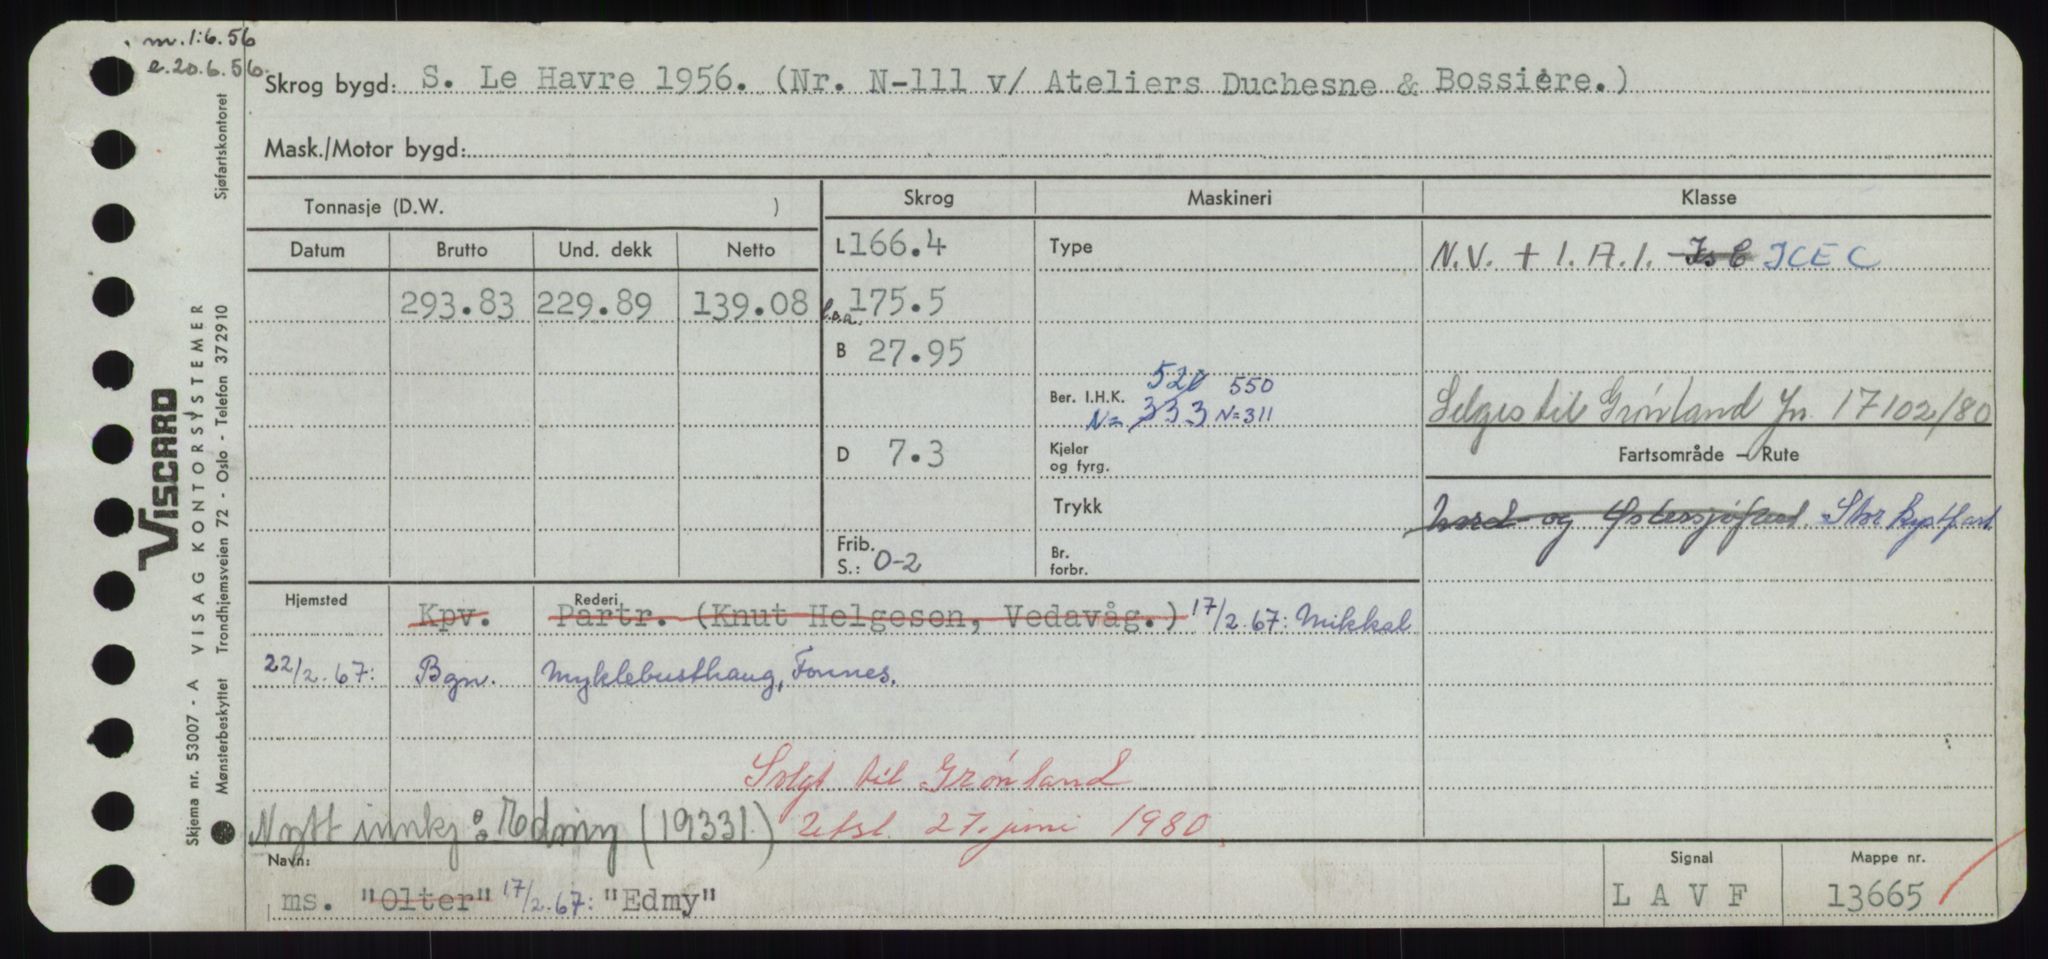 m.1.6.56
e.20.6.56.
Skrog bygd: S. Le Havre 1956. (Nr. N-111 v/ Ateliers Duchesne & Bossière.)
Mask./Motor bygd:
Tonnasje (D.W. ) Skrog Maskineri Klasse
Datum Brutto Und. dekk Netto L 166.4 Type N.V. + 1.A.1. Is C ICE C
293.83 229.89 139.08 l.o.a. 175.5
B 27.95
Ber. I.H.K. 520 550
N= 333 N=311
Selges til Grønland Jn. 17102/80
D 7.3 Kjeler og fyrg. Fartsområde – Rute
Trykk Nord- og Østersjøfart. Stor kystfart
Frib. S.: 0-2 Br. forbr.
Hjemsted Rederi
Kpv. Partr. (Knut Helgesen, Vedavåg.) 17/2.67: Mikkal
22/2.67: Bgn. Myklebusthaug, Fonnes.
Solgt til Grønland
Nytt innkj: Edmy (19331.) Utsl. 27. juni 1980
Navn: Signal Mappe nr.
ms. "Olter" 17/2.67: "Edmy" LAVF 13665
VISCARD
VISAG KONTORSYSTEMER
Skjema nr. 53007 - A
Mønsterbeskyttet Trondhjemsveien 72 - Oslo - Telefon 372910 Sjøfartskontoret